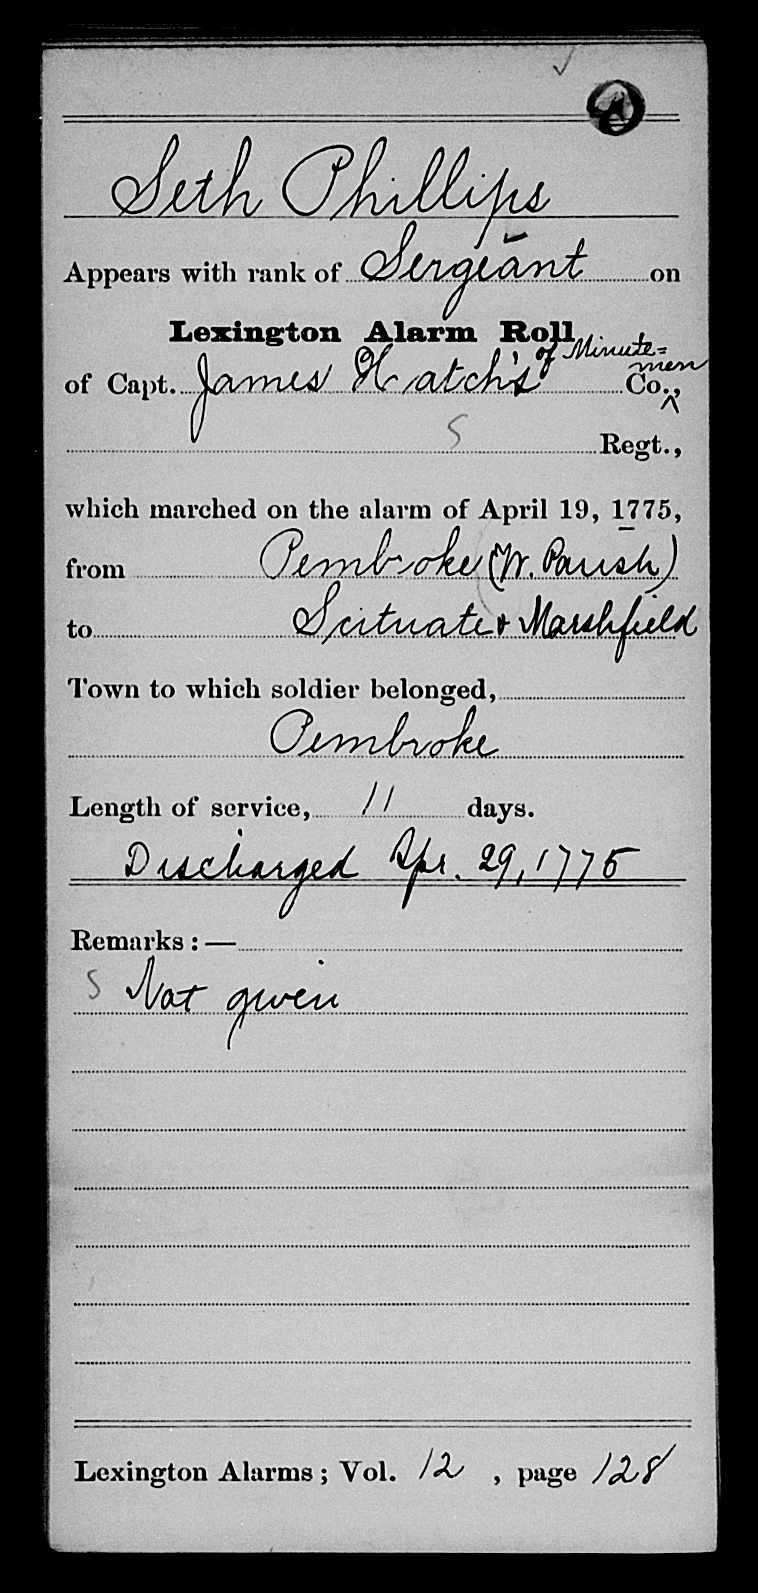 Seth Phillips
Appears with rank of Sergeant on
Lexington Alarm Roll
of Minute=
of Capt. James Hatch's Co.,
men
S Regt.,
which marched on the alarm of April 19, 1775,
from Pembroke (W. Parish)
to Scituate & Marshfield
Town to which soldier belonged,
Pembroke
Length of service, 11 days.
Discharged Apr. 29, 1775
Remarks: —
S Not given
Lexington Alarms; Vol. 12, page 128